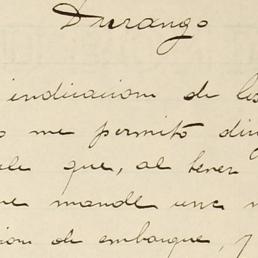 Durango
indicacion de los
me permito
que, al tener
mande una
de embarque, y